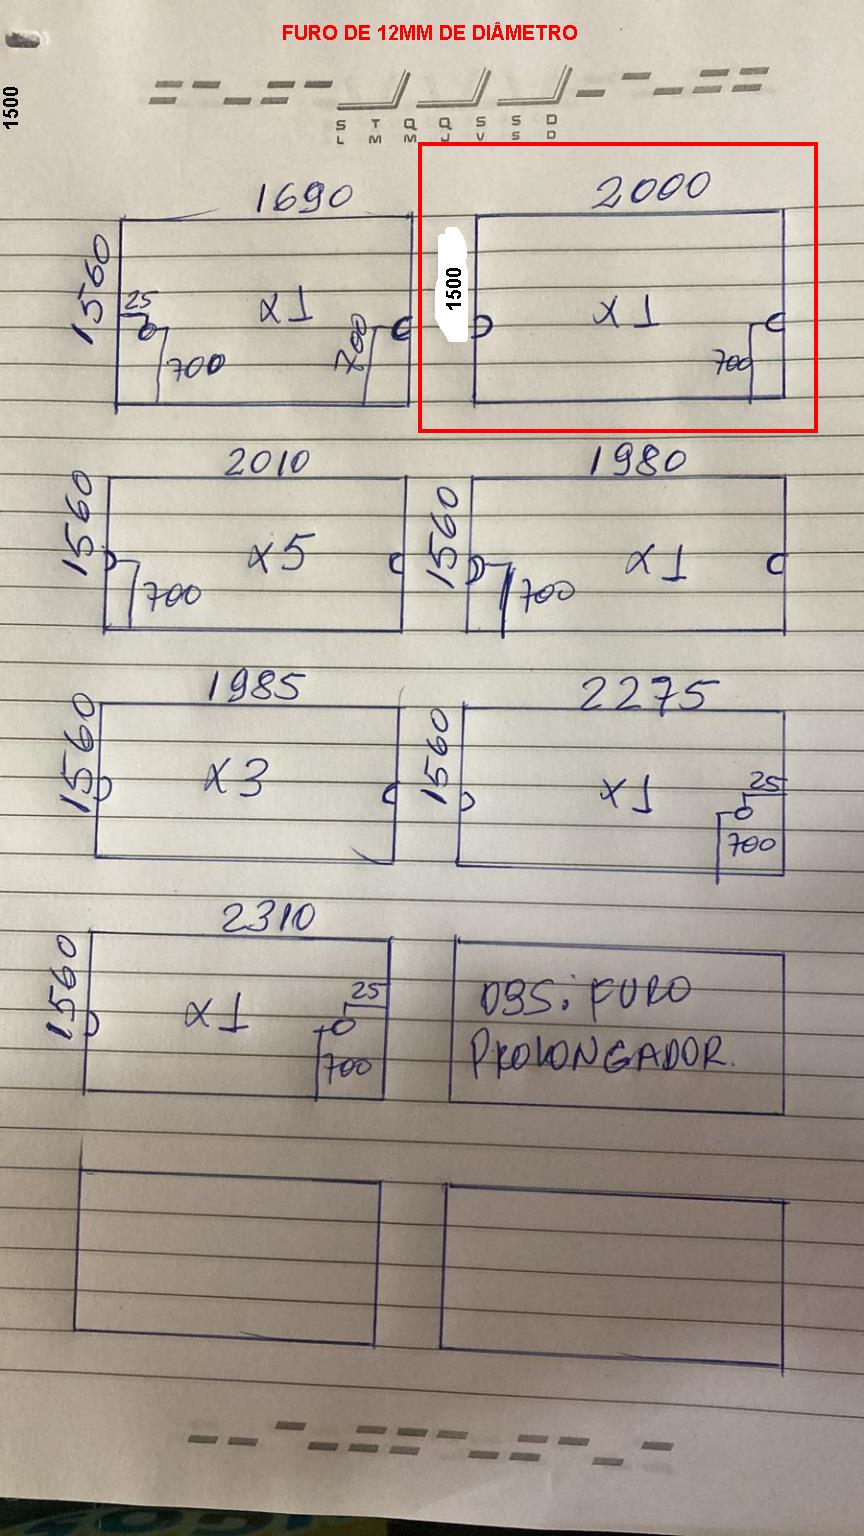 FURO DE 12MM DE DIÂMETRO
1500
S T Q Q S S D
L M M J V S D
1690
1560
25
x1
700
700
2000
1500
x1
700
2010
1560
x5
700
1980
1560
x1
700
1985
1560
x3
2275
1560
x1
25
700
2310
1560
x1
25
700
OBS: FURO
PROLONGADOR.